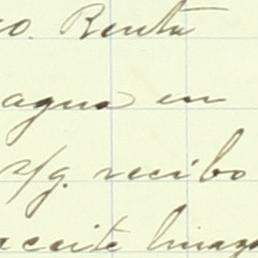 co. Renta
agua en
r/g. recibo
aceite linaza